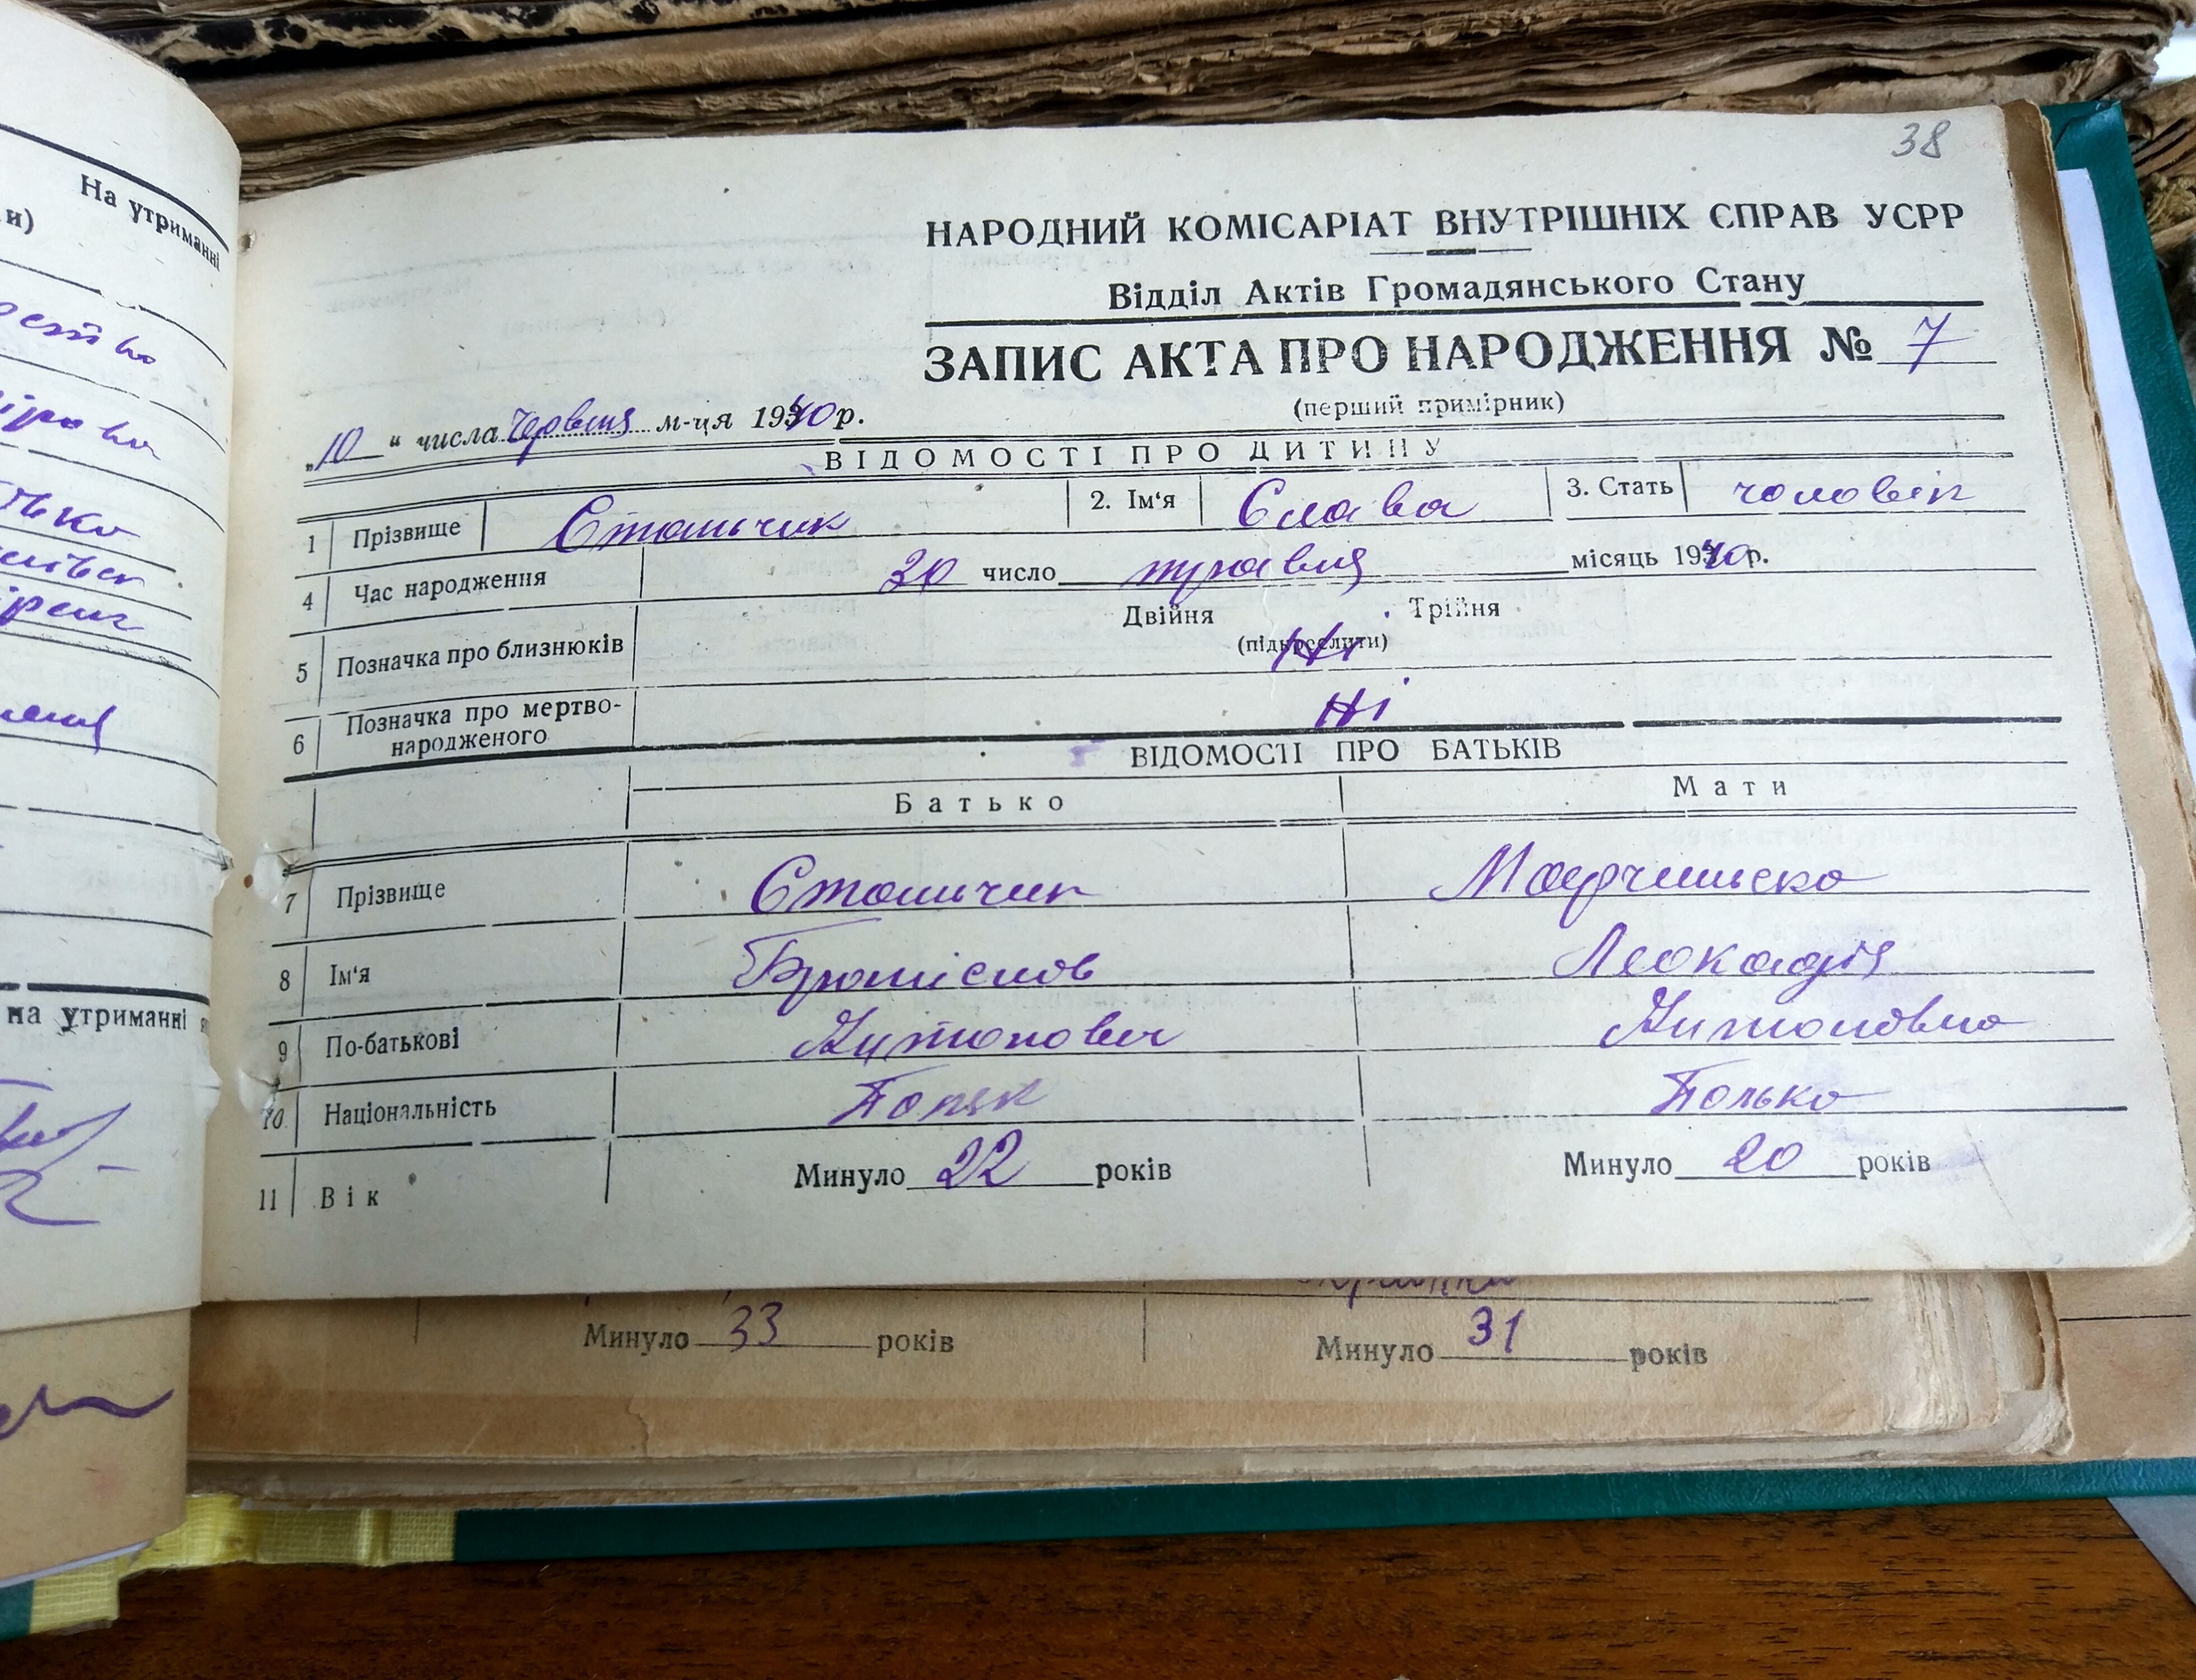 38
На утриманні
и)
НАРОДНИЙ КОМІСАРІАТ ВНУТРІШНІХ СПРАВ УСРР
Відділ Актів Громадянського Стану
ЗАПИС АКТА ПРО НАРОДЖЕННЯ № 7
(перший примірник)
„10“ числа Червня м-ця 1940 р.
ВІДОМОСТІ ПРО ДИТИНУ
1 Прізвище 2. Ім'я Слава 3. Стать чоловік
4 Час народження 30 число травня місяць 1940 р.
5 Позначка про близнюків Двійня Трійня
(підкреслити) Ні
6 Позначка про мертво-
народженого Ні
ВІДОМОСТІ ПРО БАТЬКІВ
Батько Мати
7 Прізвище
8 Ім'я Броніслов Леокадія
9 По-батькові Антонович Антоновна
10 Національність Поляк Полька
11 Вік Минуло 22 років Минуло 20 років
на утриманні
Минуло 33 років Минуло 31 років